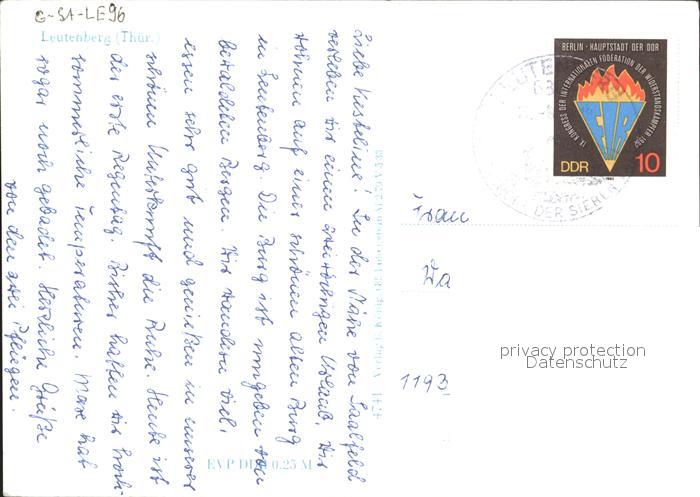 G-SA-LE96
Leutenberg (Thür.)
Liebe Kätheline! In der Nähe von Saalfeld
verleben wir einen zweiwöchigen Urlaub. Wir
wohnen auf einer schönen alten Burg
in Leutenberg. Die Burg ist umgeben von
bewaldeten Bergen. Wir wandern viel,
essen sehr gut und genießen in unserer
schönen Unterkunft die Ruhe. Heute ist
der erste Regentag. Bisher hatten wir hoch-
sommerliche Temperaturen. Max hat
sogar noch gebadet. Herzliche Grüße
von den zwei
EVP DDR 0.25 M
BERLIN · HAUPTSTADT DER DDR
IX. KONGRESS DER INTERNATIONALEN FÖDERATION DER WIDERSTANDSKÄMPFER 1982
FIR
DDR 10
1982
LEUTENB
DER SIEBEN
Frau
Wa
1193
privacy protection
Datenschutz